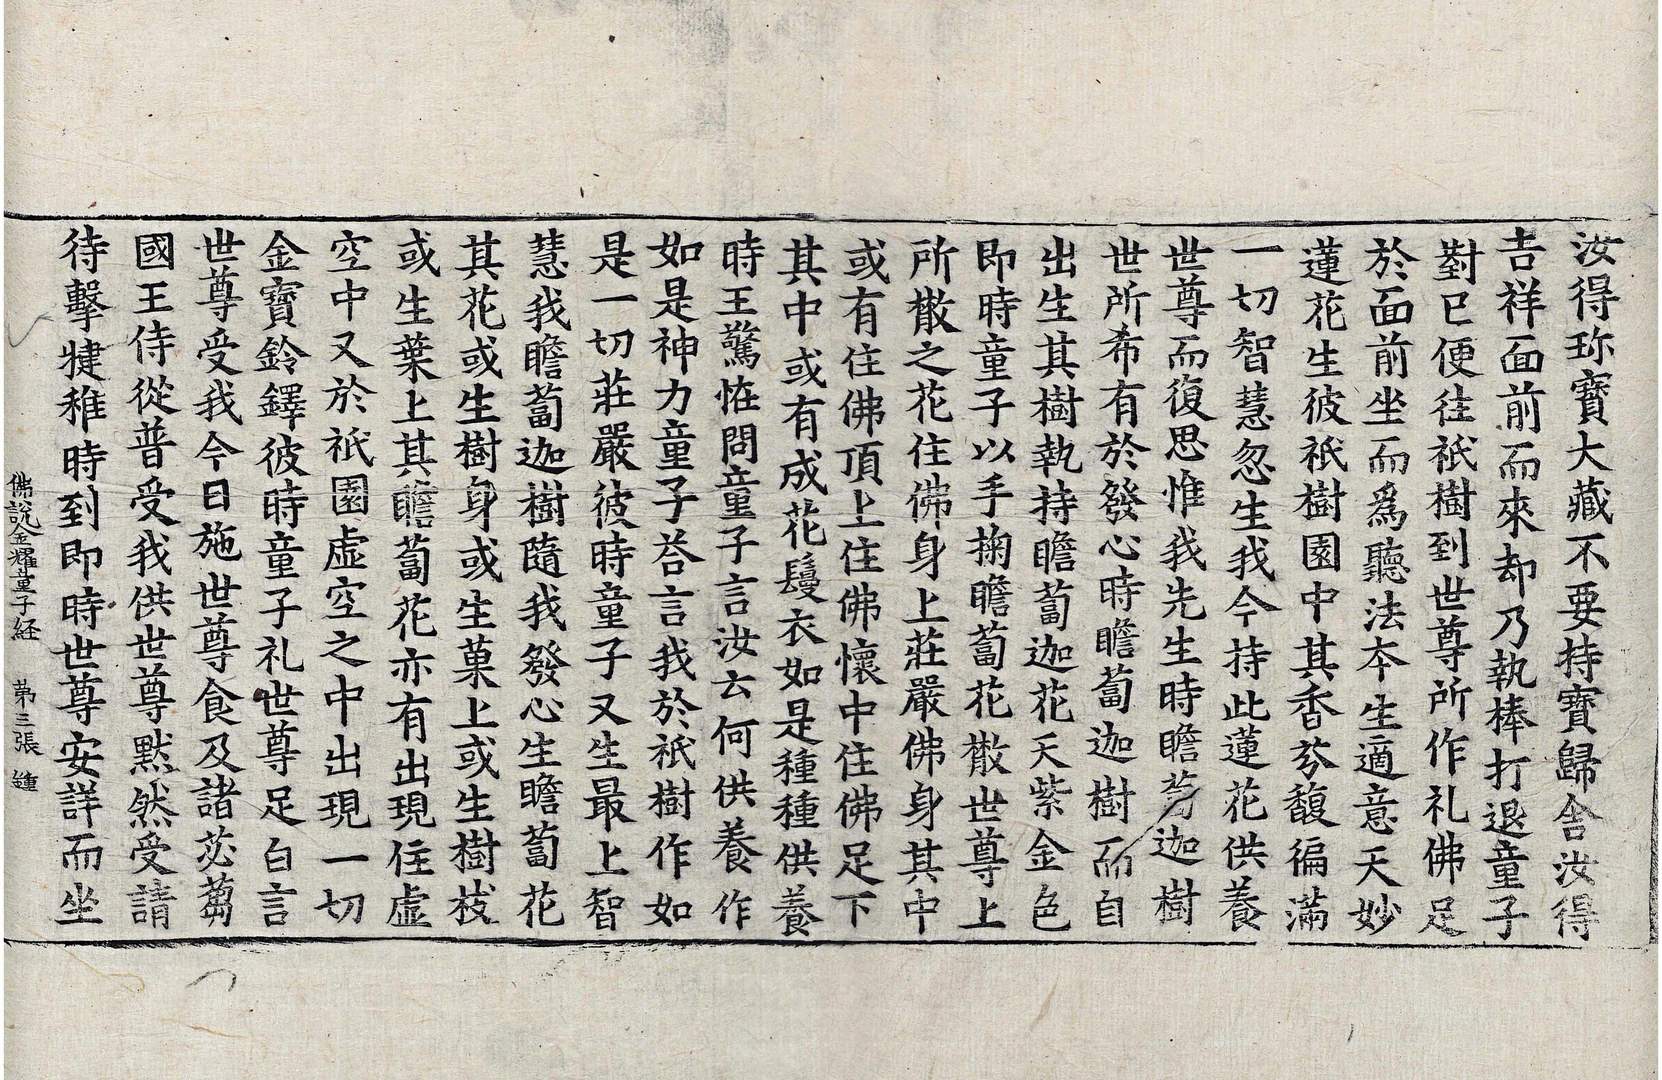 汝得珎寶大藏不要持寶歸舍汝得
吉祥面前而來却乃執棒打退童子
對已便往祇樹到世尊所作礼佛足
於面前坐而爲聽法夲生適意天妙
蓮花生彼祇樹園中其香芬馥徧滿
一切智慧忽生我今持此蓮花供養
世尊而復思惟我先生時瞻蔔迦樹
世所希有於發心時瞻蔔迦樹而自
出生其樹執持瞻蔔迦花天紫金色
即時童子以手掬瞻蔔花散世尊上
所散之花住佛身上莊嚴佛身其中
或有住佛頂上住佛懷中住佛足下
其中或有成花鬘衣如是種種供養
時王驚恠問童子言汝云何供養作
如是神力童子荅言我於祇樹作如
是一切莊嚴彼時童子又生最上智
慧我瞻蔔迦樹隨我發心生瞻蔔花
其花或生樹身或生菓上或生樹枝
或生葉上其瞻蔔花亦有出現住虛
空中又於祇園虛空之中出現一切
金寶鈴鐸彼時童子礼世尊足白言
世尊受我今日施世尊食及諸苾蒭
國王侍從普受我供世尊默然受請
待擊揵稚時到即時世尊安詳而坐
佛說金耀童子経 苐三張 鍾